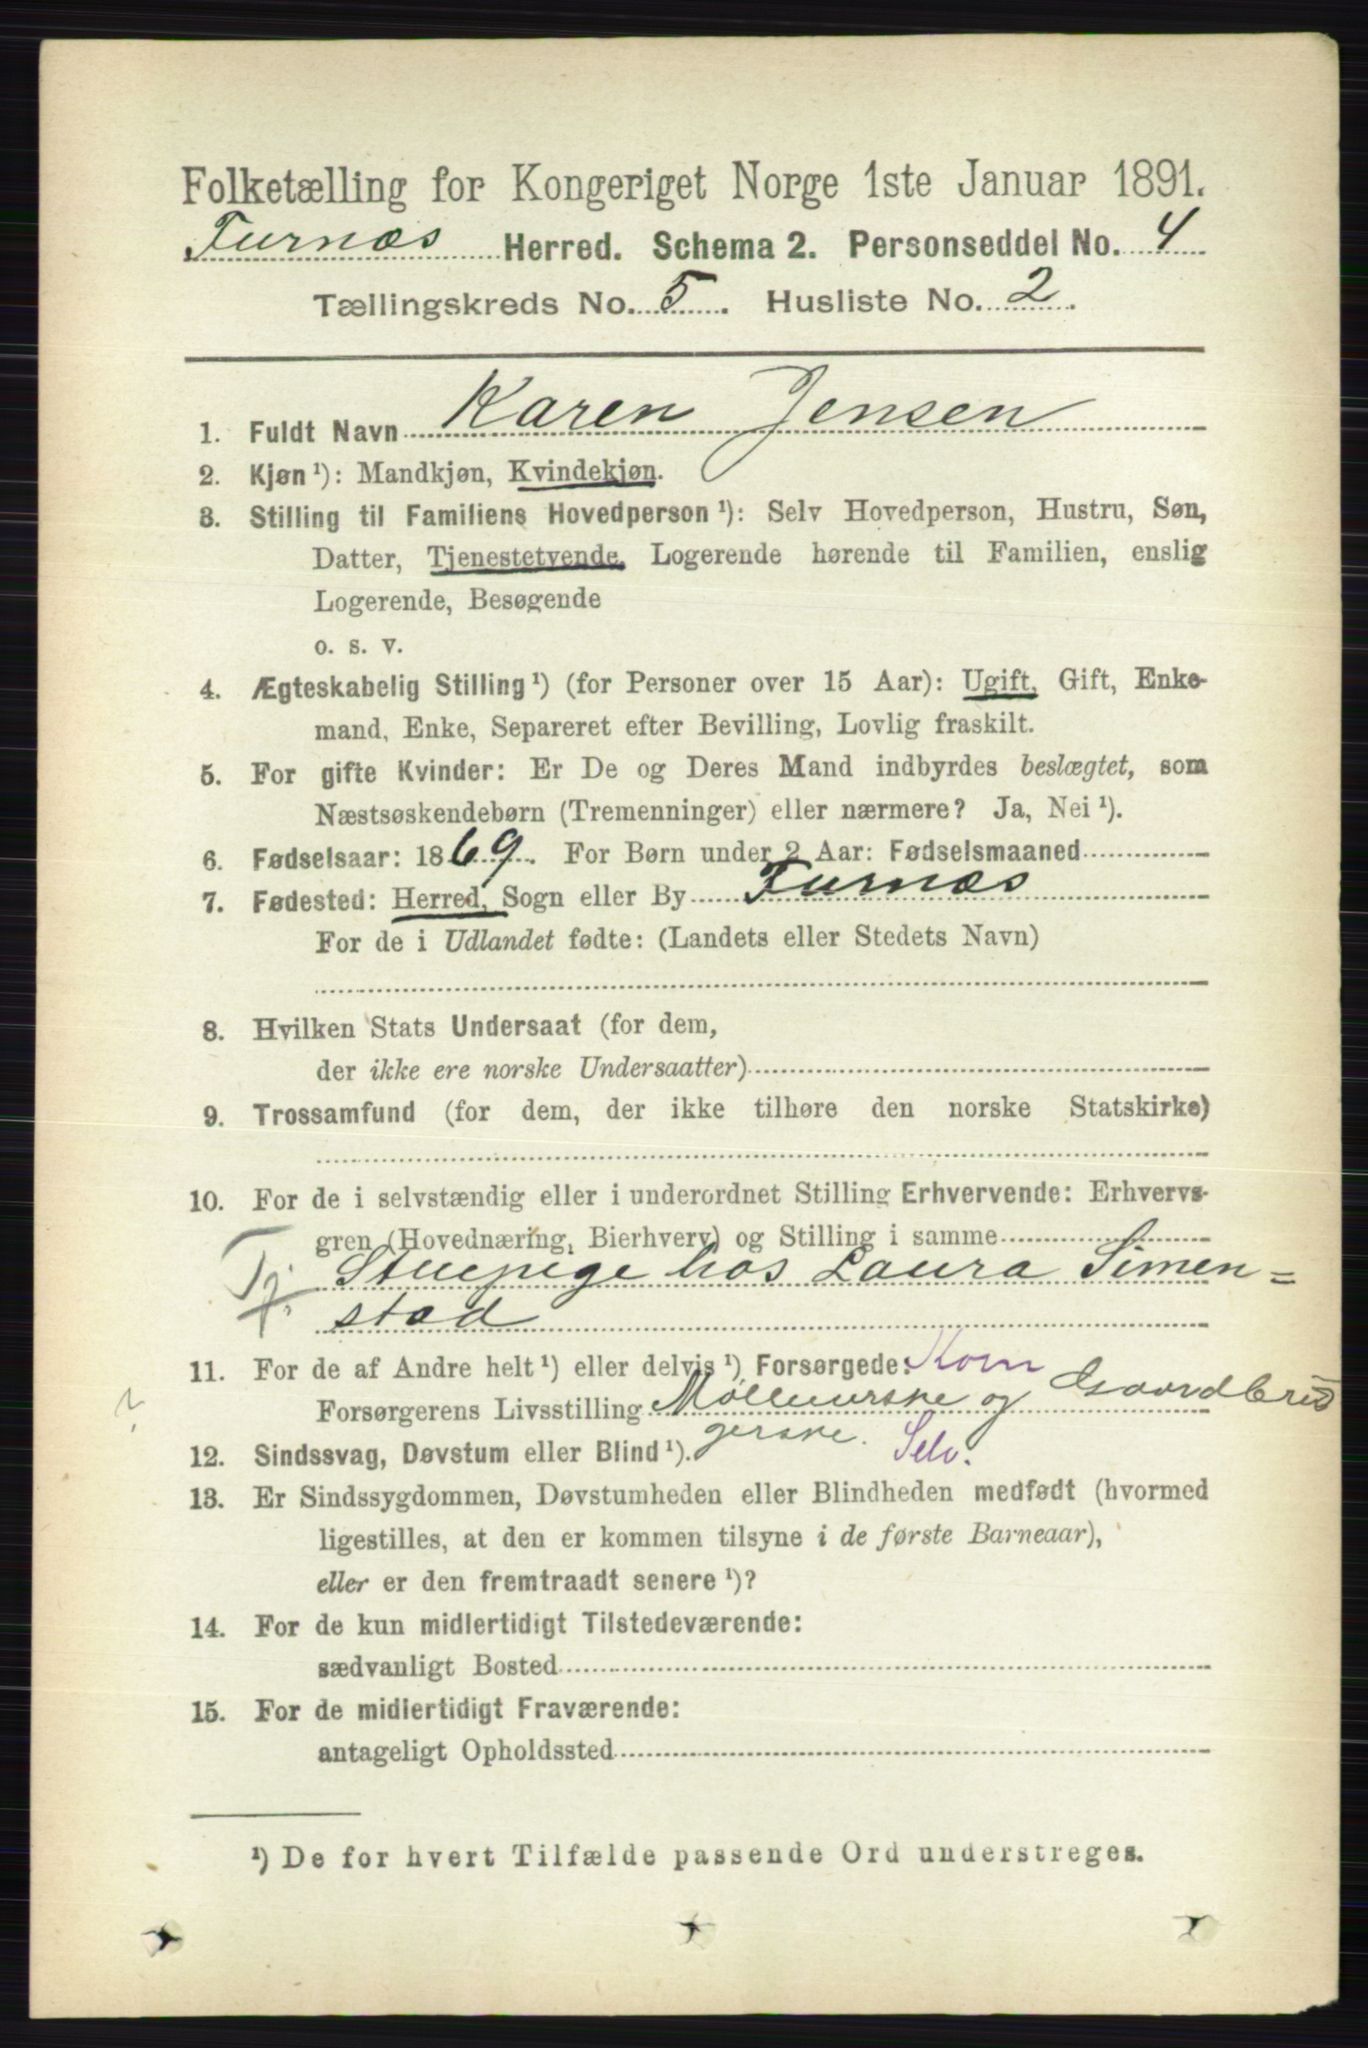 Folketælling for Kongeriget Norge 1ste Januar 1891.
Furnæs Herred. Schema 2. Personseddel No. 4
Tællingskreds No. 5. Husliste No. 2.
1. Fuldt Navn Karen Jensen
2. Kjøn ¹): Mandkjøn, Kvindekjøn.
3. Stilling til Familiens Hovedperson ¹): Selv Hovedperson, Hustru, Søn,
Datter, Tjenestetyende, Logerende hørende til Familien, enslig
Logerende, Besøgende
o. s. v.
4. Ægteskabelig Stilling ¹) (for Personer over 15 Aar): Ugift, Gift, Enke-
mand, Enke, Separeret efter Bevilling, Lovlig fraskilt.
5. For gifte Kvinder: Er De og Deres Mand indbyrdes beslægtet, som
Næstsøskendebørn (Tremenninger) eller nærmere? Ja, Nei ¹).
6. Fødselsaar: 1869. For Børn under 2 Aar: Fødselsmaaned
7. Fødested: Herred, Sogn eller By Furnæs
For de i Udlandet fødte: (Landets eller Stedets Navn)
8. Hvilken Stats Undersaat (for dem,
der ikke ere norske Undersaatter)
9. Trossamfund (for dem, der ikke tilhøre den norske Statskirke)
10. For de i selvstændig eller i underordnet Stilling Erhvervende: Erhvervs-
gren (Hovednæring, Bierhverv) og Stilling i samme
Tj. Stuepige hos Laura Simen=
stad
11. For de af Andre helt ¹) eller delvis ¹) Forsørgede: Korn
Forsørgerens Livsstilling Mölleierske og Gaardbru
gerske. Selv.
12. Sindssvag, Døvstum eller Blind ¹).
13. Er Sindssygdommen, Døvstumheden eller Blindheden medfødt (hvormed
ligestilles, at den er kommen tilsyne i de første Barneaar),
eller er den fremtraadt senere ¹)?
14. For de kun midlertidigt Tilstedeværende:
sædvanligt Bosted
15. For de midlertidigt Fraværende:
antageligt Opholdssted
¹) De for hvert Tilfælde passende Ord understreges.